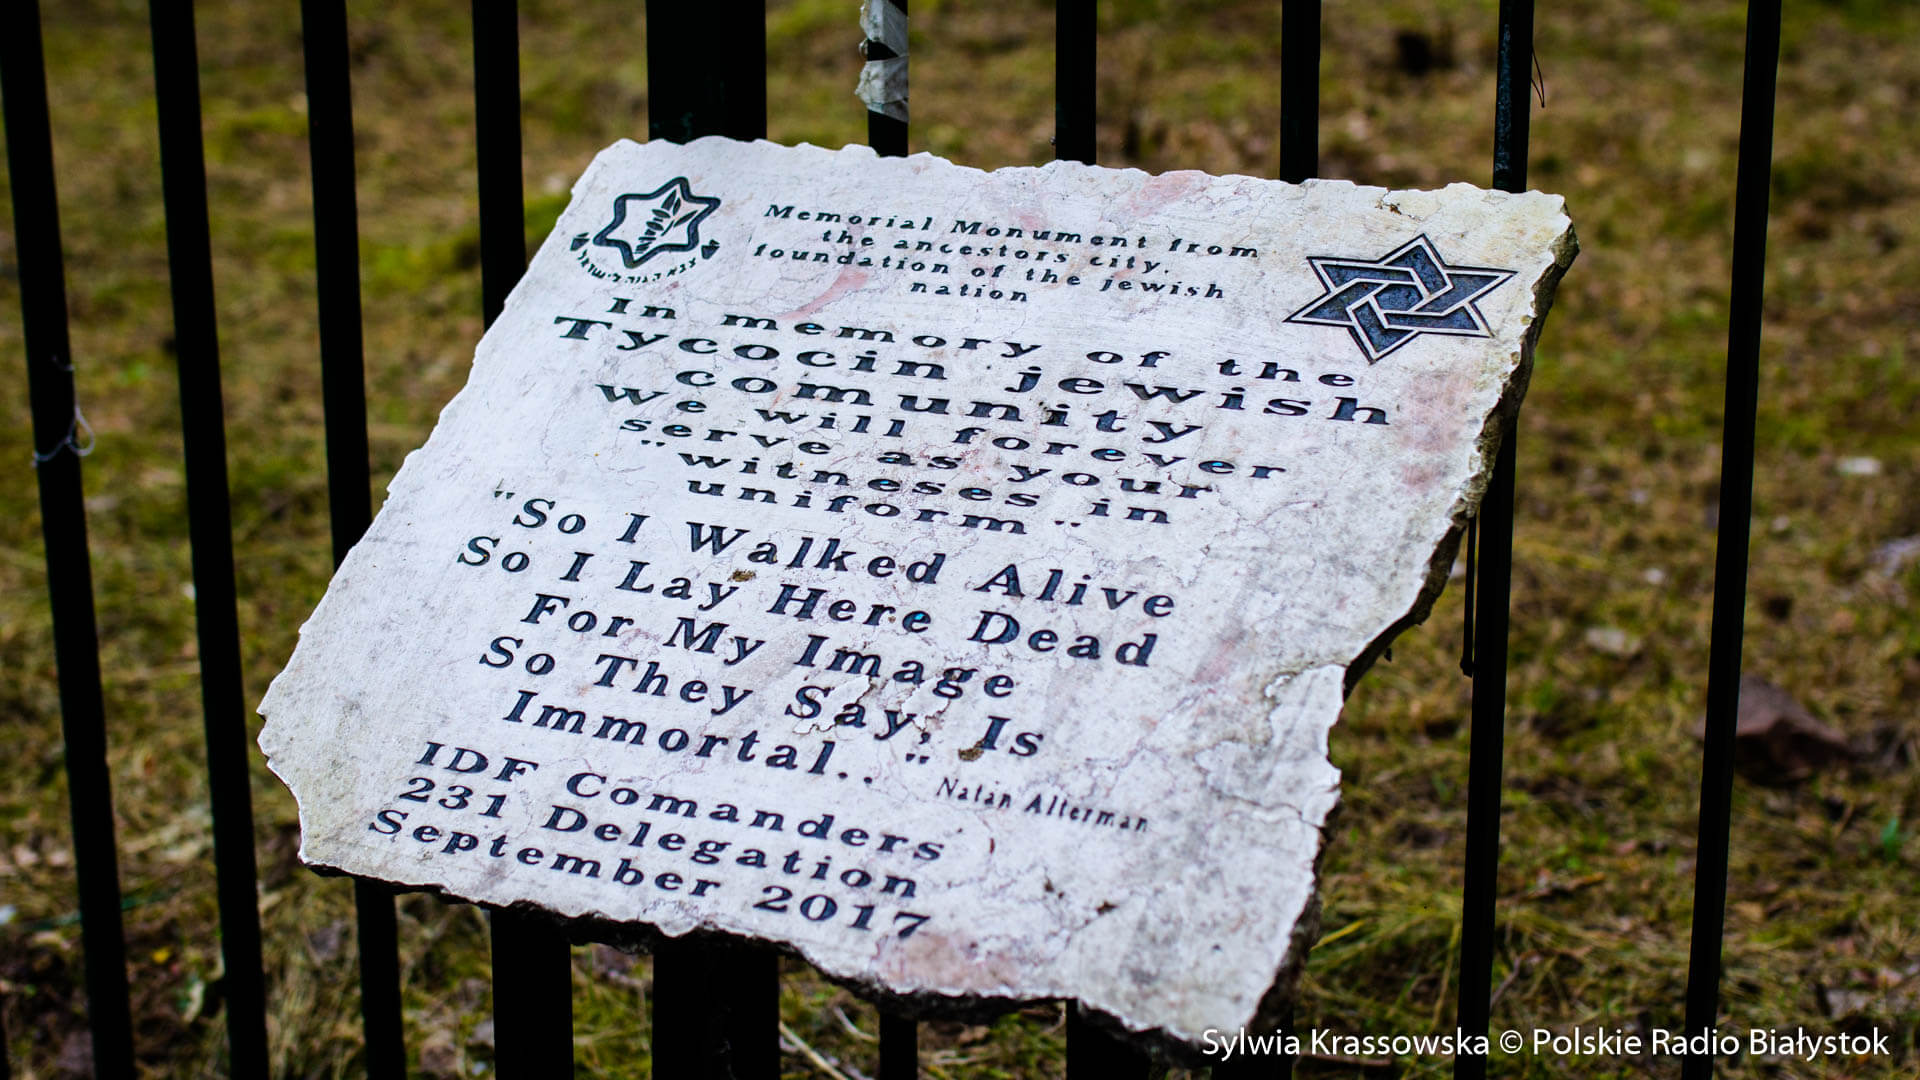 Memorial Monument from
the ancestors city.
foundation of the jewish
nation
צבא הגנה לישראל
In memory of the
Tycocin jewish
comunity
we will forever
serve as your
"witneses in
uniform"
"So I Walked Alive
So I Lay Here Dead
For My Image
So They Say, Is
Immortal.. "
Natan Alterman
IDF Comanders
231 Delegation
September 2017
Sylwia Krassowska © Polskie Radio Białystok